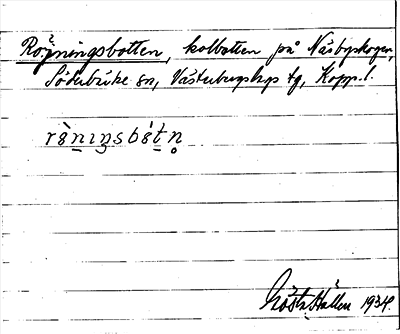 Röjningsbotten, kolbotten på Näsbyskogen,
Söderbärke sn, Västerbergslags tg, Kopp. l.
rö̀nɩŋsbót̠n̥
Gösta Hallen 1934.